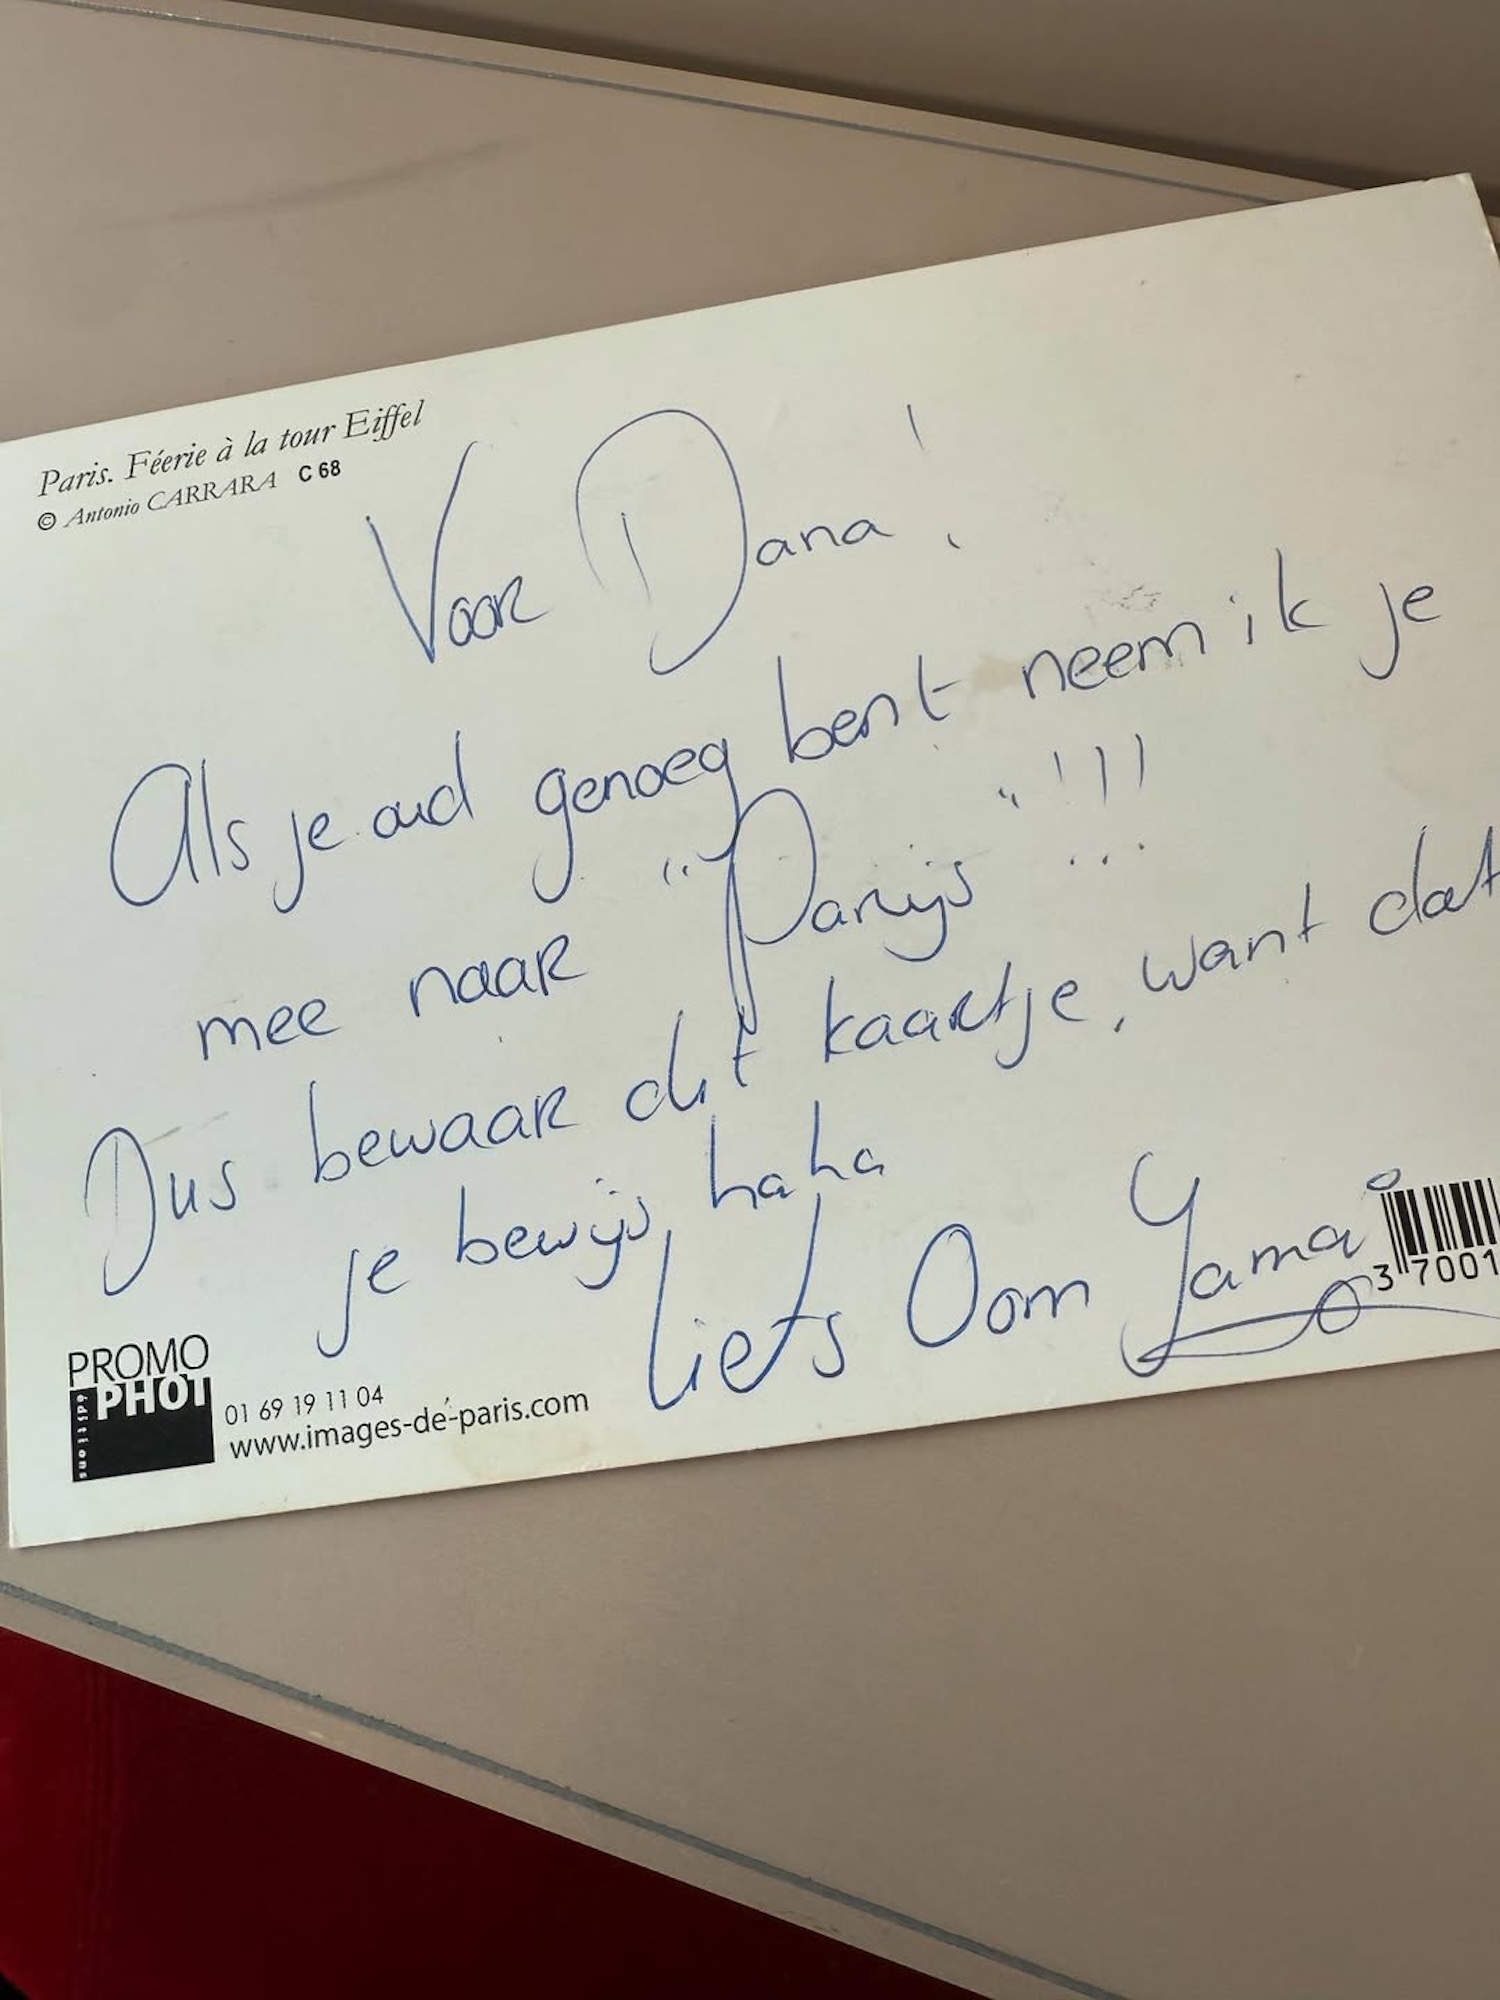 Paris. Féerie à la tour Eiffel
© Antonio CARRARA C 68
Voor Dana!
Als je oud genoeg bent neem ik je
mee naar "Parijs"!!!
Dus bewaar dit kaartje, want dat
je bewijs haha
liefs Oom Yama
3 7001
PROMO
PHOT
éditions
01 69 19 11 04
www.images-de-paris.com